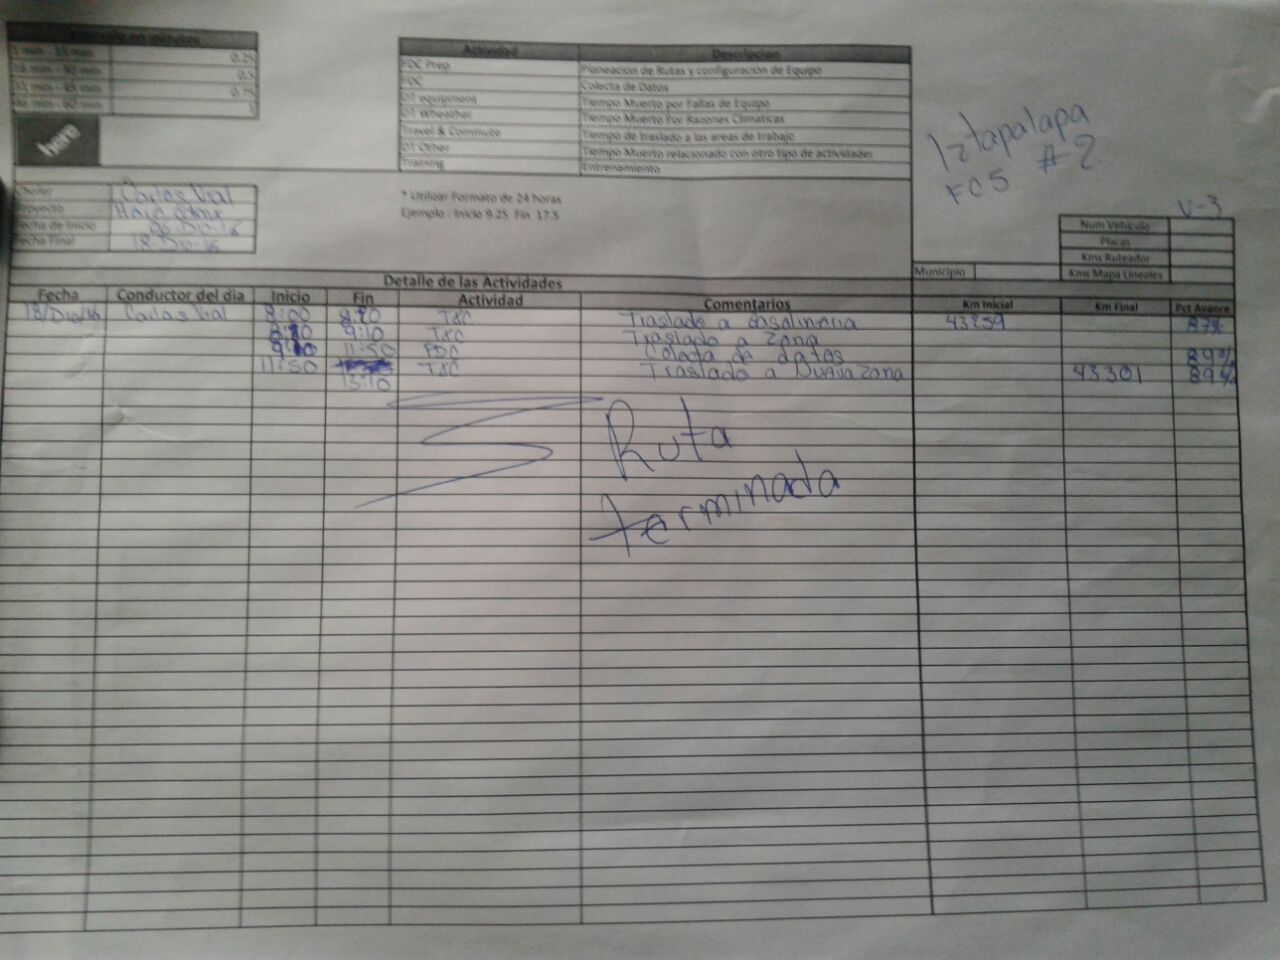 1 min - 15 min 0.25
16 min - 30 min 0.5
31 min - 45 min 0.75
46 min - 60 min 1
here
Actividad Descripcion
FDC Prep Planeacion de Rutas y configuración de Equipo
FDC Colecta de Datos
DT equipment Tiempo Muerto por Fallas de Equipo
DT Wheather Tiempo Muerto Por Razones Climaticas
Travel & Commute Tiempo de traslado a las areas de trabajo
DT Other Tiempo Muerto relacionado con otro tipo de actividades
Training Entrenamiento
Iztapalapa
FC5 #2
Chofer Carlos Vial
Proyecto
Fecha de Inicio 06-Dic-16
Fecha Final 18-Dic-16
* Utilizar Formato de 24 horas
Ejemplo : Inicio 9.25 Fin 17.5
V-3
Num Vehiculo
Placas
Kms Ruteador
Municipio Kms Mapa Lineales
Detalle de las Actividades
Fecha Conductor del dia Inicio Fin Actividad Comentarios Km Inicial Km Final Pct Avance
18/Dic/16 Carlos Vial 8:00 8:20 T&C Traslado a Gasolineria 43259 87%
8:20 9:10 T&C Traslado a Zona
9:10 11:50 FDC Colecta de datos 89%
11:50 T&C Traslado a Nueva Zona 43301 89%
13:10
Ruta
terminada